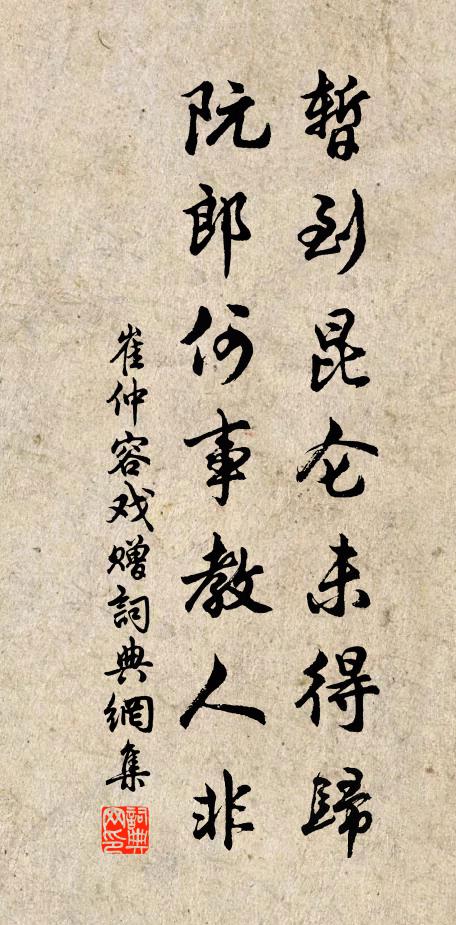 暫到昆仑未得歸
阮郎何事教人非
崔仲容戏贈詞典網集
詞典网印